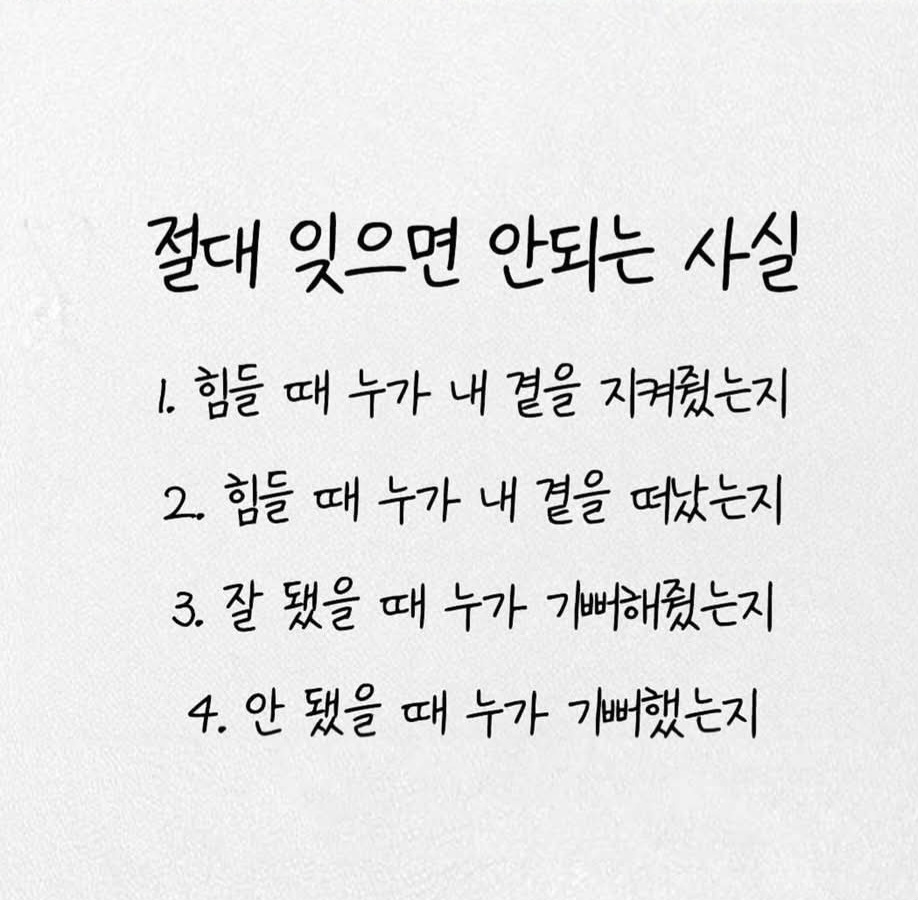 절대 잊으면 안되는 사실
1. 힘들 때 누가 내 곁을 지켜줬는지
2. 힘들 때 누가 내 곁을 떠났는지
3. 잘 됐을 때 누가 기뻐해줬는지
4. 안 됐을 때 누가 기뻐했는지